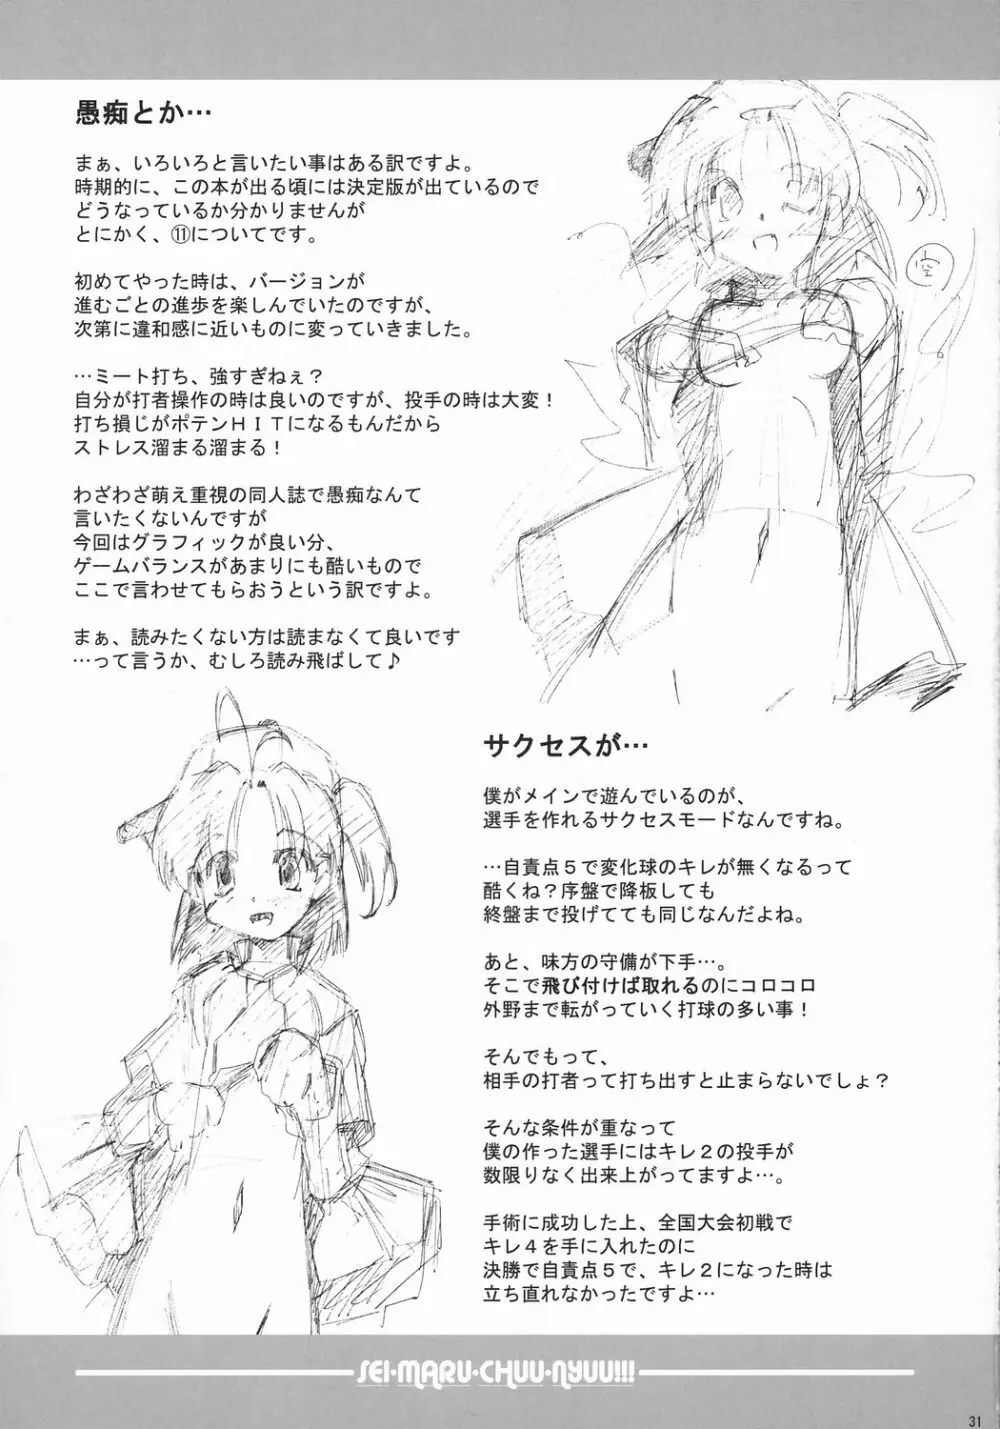 愚痴とか…
まぁ、いろいろと言いたい事はある訳ですよ。
時期的に、この本が出る頃には決定版が出ているので
どうなっているか分かりませんが
とにかく、⑪についてです。
初めてやった時は、バージョンが
進むごとの進歩を楽しんでいたのですが、
次第に違和感に近いものに変っていきました。
…ミート打ち、強すぎねぇ？
自分が打者操作の時は良いのですが、投手の時は大変！
打ち損じがポテンＨＩＴになるもんだから
ストレス溜まる溜まる！
わざわざ萌え重視の同人誌で愚痴なんて
言いたくないんですが
今回はグラフィックが良い分、
ゲームバランスがあまりにも酷いもので
ここで言わせてもらおうという訳ですよ。
まぁ、読みたくない方は読まなくて良いです
…って言うか、むしろ読み飛ばして♪
空
サクセスが…
僕がメインで遊んでいるのが、
選手を作れるサクセスモードなんですね。
…自責点５で変化球のキレが無くなるって
酷くね？序盤で降板しても
終盤まで投げてても同じなんだよね。
あと、味方の守備が下手…。
そこで飛び付けば取れるのにコロコロ
外野まで転がっていく打球の多い事！
そんでもって、
相手の打者って打ち出すと止まらないでしょ？
そんな条件が重なって
僕の作った選手にはキレ２の投手が
数限りなく出来上がってますよ…。
手術に成功した上、全国大会初戦で
キレ４を手に入れたのに
決勝で自責点５で、キレ２になった時は
立ち直れなかったですよ…
SEI・MARU・CHUU・NYUU!!!
31